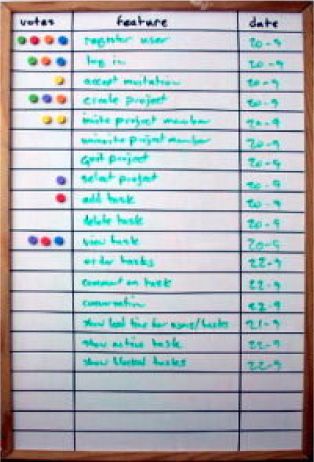 votes feature date
register user 20-9
log in 20-9
accept invitation 20-9
create project 20-9
invite project member 20-9
uninvite project member 20-9
quit project 20-9
select project 20-9
add task 20-9
delete task 20-9
view task 20-9
order tasks 22-9
comment on task 22-9
conversation 22-9
show lead time for users/tasks 21-9
show active task 22-9
show blocked tasks 22-9